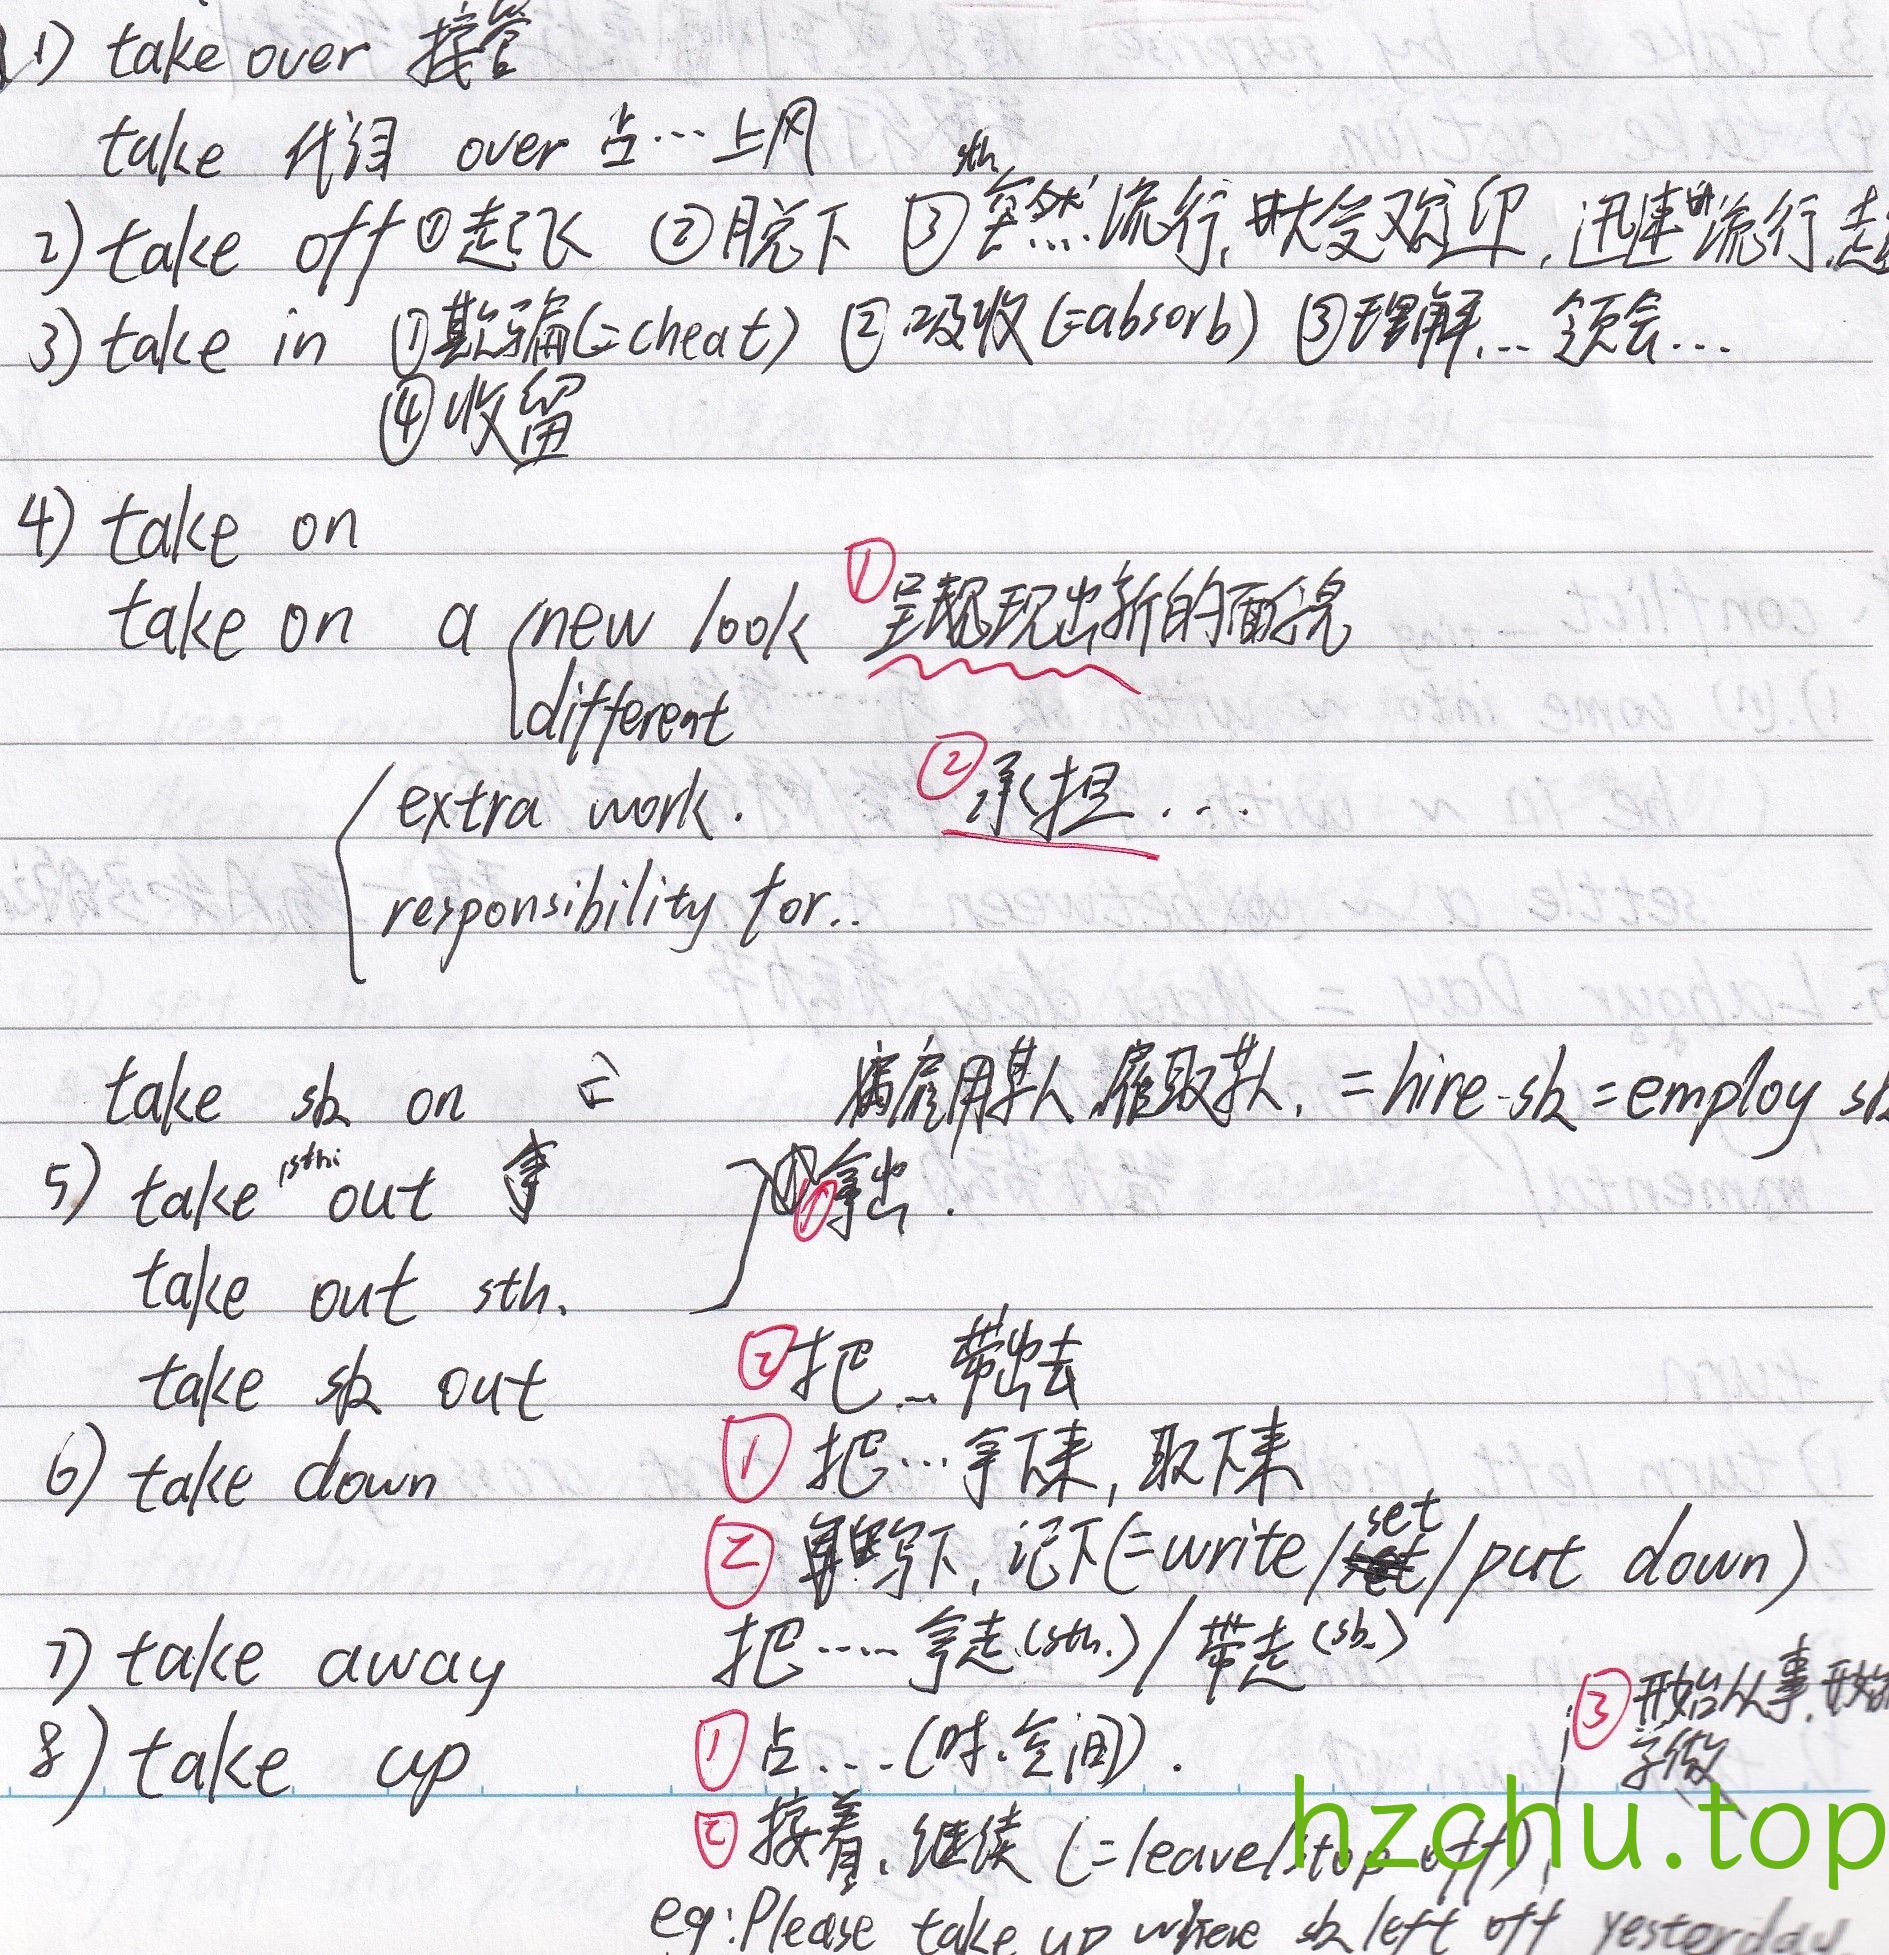 1) take over 接管
take 代词 over 占…上风
2) take off ①起飞 ②脱下 ③sth 突然流行,大受欢迎,迅速流行起
3) take in ①欺骗(=cheat) ②吸收(=absorb) ③理解… 领会…
④收留
4) take on
take on a new look ①呈现出新的面貌
different
extra work. ②承担...
responsibility for..
take sb on 雇用某人,雇取某人. =hire sb=employ sb
5) take sth. out 拿 ①拿出.
take out sth.
take sb out ②把…带出去
6) take down ①把…拿下来,取下来
②写下,记下(=write/set/put down)
7) take away 把……拿走(sth.)/带走(sb.)
8) take up ①占…(时.空间). ③开始从事.开始
学做
②接着.继续 (=leave/stop off)
eg:Please take up where sb left off yesterday
hzchu.top